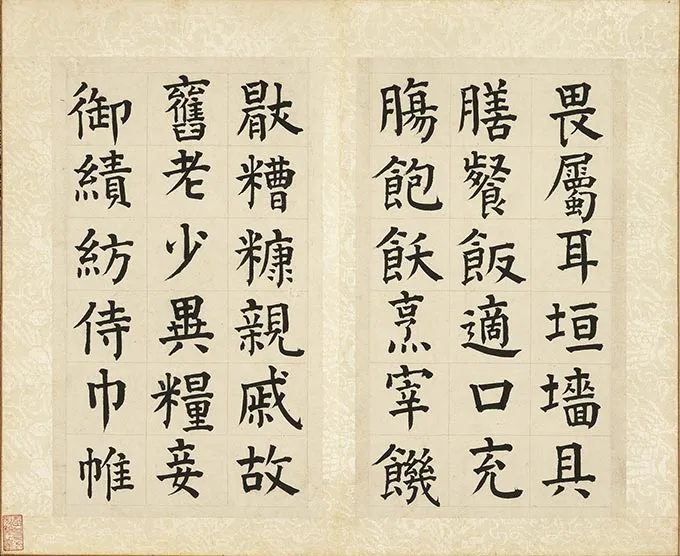 畏屬耳垣墻具
膳餐飯適口充
腸飽飫烹宰饑
猒糟糠親戚故
舊老少異糧妾
御績紡侍巾帷